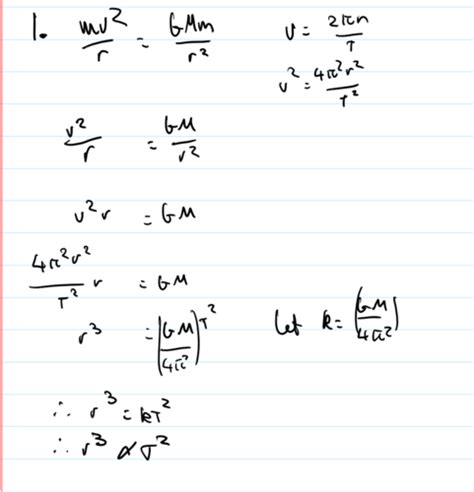 1. mv²/r = GMm/r² v = 2πr/T
v² = 4π²r²/T²
v²/r = GM/r²
v²r = GM
4π²r²/T² r = GM
r³ = (GM/4π²)T² Let k = (GM/4π²)
∴ r³ = kT²
∴ r³ ∝ T²